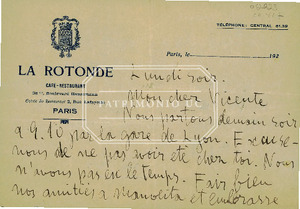 TÉLÉPHONE: CENTRAL 61.39
LA ROTONDE
CAFÉ-RESTAURANT
PARIS
Paris, le 192
Lundi soir.
Mon cher Vicente
Nous partons demain soir
a 9.10 par la gare de Lyon. Excuse-
nous de ne pas avoir été chez toi. Nous
n'avons pas eu le temps. Fais bien
nos amitiés a Manolita et embrasse
PATRIMONIO UC